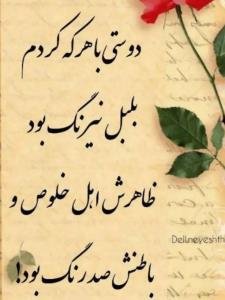 دوستی با هر که کردم
بلبل نیرنگ بود
ظاهرش اهل خلوص و
باطنش صد رنگ بود!
Dellneveshth